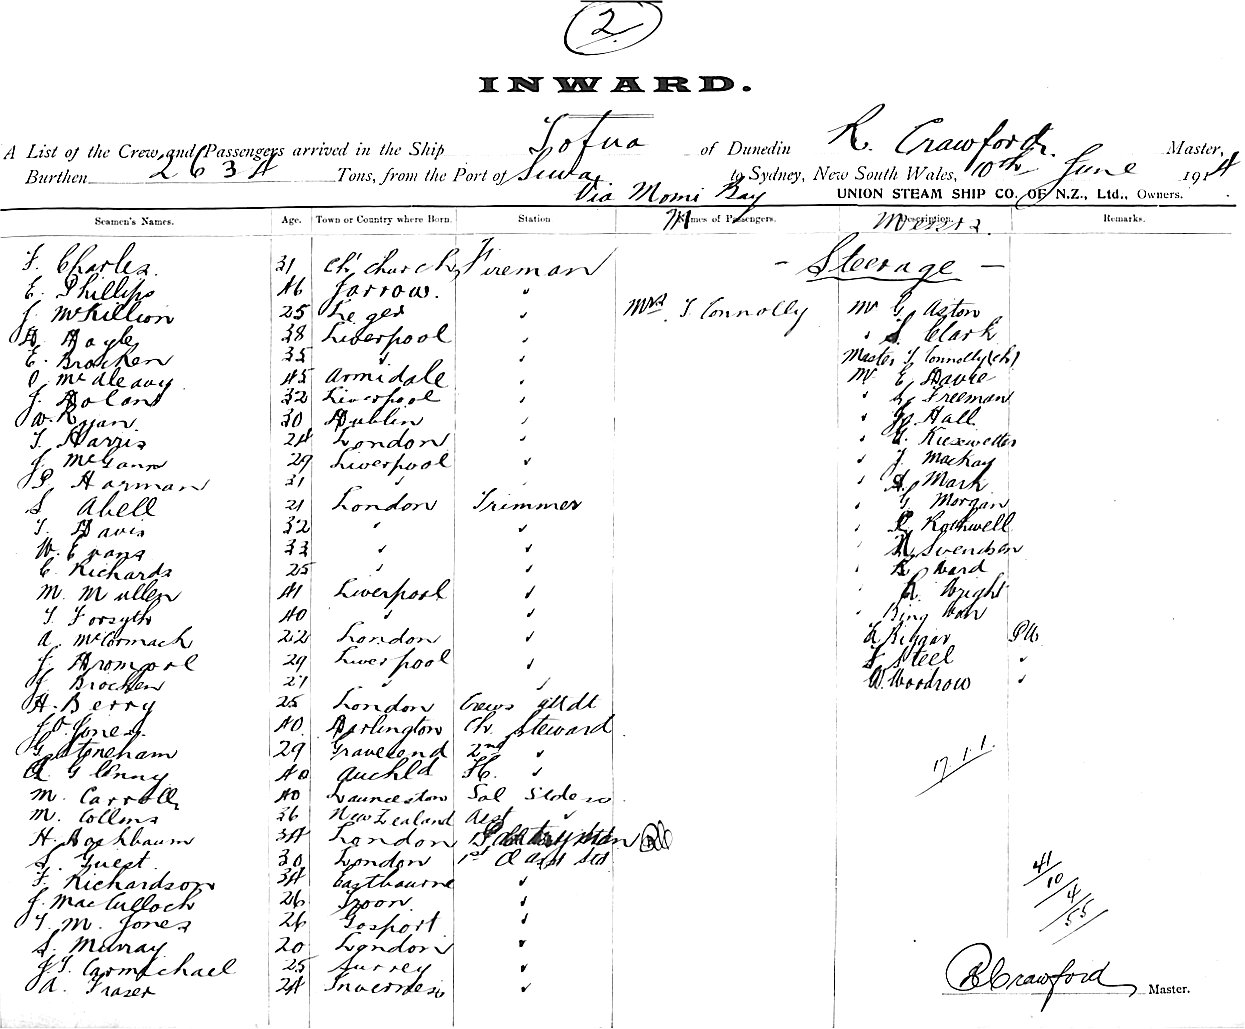 2
INWARD.
A List of the Crew and Passengers arrived in the Ship Tofua of Dunedin R. Crawford Master,
Burthen 2634 Tons, from the Port of Suva to Sydney, New South Wales, 10th June 1914
Via Momi Bay UNION STEAM SHIP CO. OF N.Z., Ltd., Owners.
Seamen's Names. Age. Town or Country where Born. Station Names of Passengers. Description. Remarks.
M Messrs.
F. Charles. 31 Ch'church Fireman - Steerage -
E. Phillips 46 Jarrow. "
J. McKillion 25 Leger " Mrs. T Connolly Mr G Aston
H Hoyle 38 Liverpool " " S. Clark
E. Brocken 35 " " Master T Connolly (ch)
O McAleavy 45 Armidale " Mr E Davie
J. Dolan 32 Liverpool " " Freeman
W. Ryan 30 Dublin " " Hall
T. Harris 24 London " " Kiesewetter
J. McGann 29 Liverpool " " J. Mackay
P. Harman 31 " " " Mark
S Abell 21 London Trimmer " G Morgan
T. Davis 32 " " " Rothwell
W. Evans 33 " " " Svendsen
C. Richards 25 " " " Ward
M. Mullen 41 Liverpool " R. Wright
T. Forsyth 40 " "
A. McCormack 22 London " Riggar
J. Brompool 29 Liverpool " Steel "
J Brocken 21 " " W. Woodrow "
H. Berry 25 London Crews attdt
J O Jones. 40 Darlington Ch. Steward
G. Stoneham 29 Gravesend 2nd "
A Glenny 40 Auckld "
M. Carroll 40 Launceston
M. Collins 36 New Zealand Asst "
H. 34 London
S. Guest 30 London 1st
F. Richardson 34 Eastbourne "
J. MacCulloch 26 Troon "
T. M. Jones 26 Gosport "
S. Murray 20 London "
J T Carmichael 25 Surrey "
A. Fraser 24 Inverness "
17.1.1.
41
10
4
55
R Crawford Master.